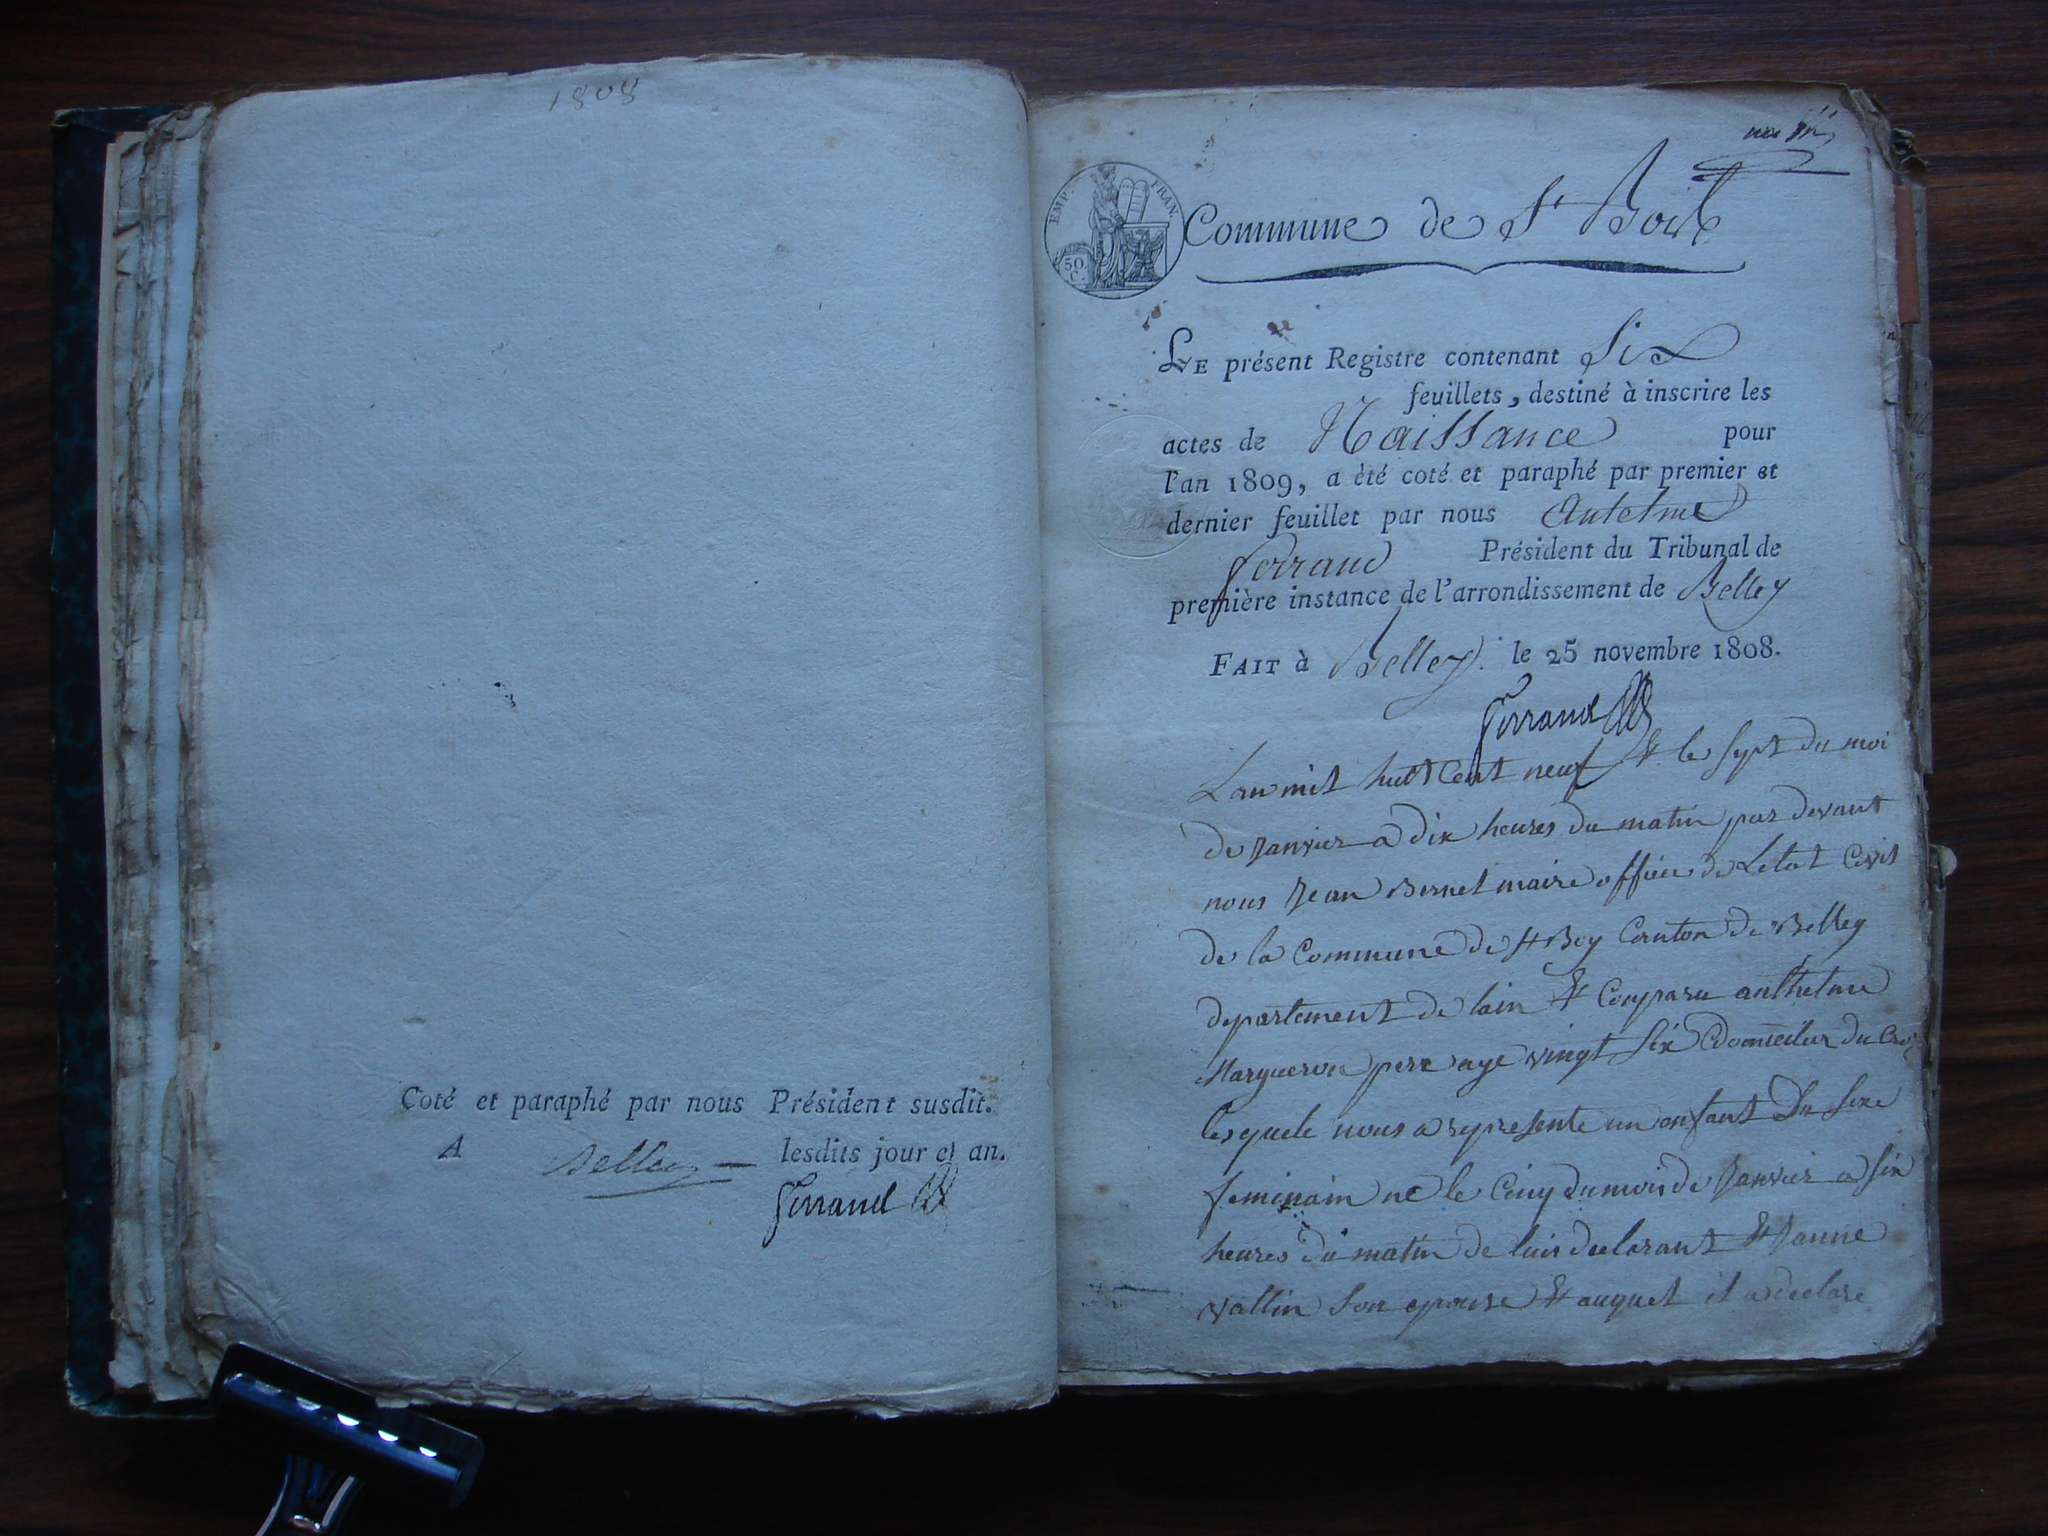 1808
Coté et paraphé par nous Président susdit.
A Belley lesdits jour et an.
Ferrand
EMP. FRAN.
50
C.
Commune de St Boix
LE présent Registre contenant Six
feuillets, destiné à inscrire les
actes de Naissance pour
l'an 1809, a été coté et paraphé par premier et
dernier feuillet par nous Antelme
Ferrand Président du Tribunal de
première instance de l'arrondissement de Belley
FAIT à Belley. le 25 novembre 1808.
Ferrand
Lan mil huit Cent neuf & le sept du moi
de Janvier a dix heures du matin par devant
nous Jean Bernet maire officie de Letat Civil
de la Commune de St Boy Canton de Belley
departement de lain & Comparu anthelme
Margueron pere age vingt six domicilier du
lesquele nous a represente un enfant Du sexe
feminain ne le Cinq du mois de Janvier a six
heures du matin de luis declarant & Janne
vallin son epouse & auquel il a declare